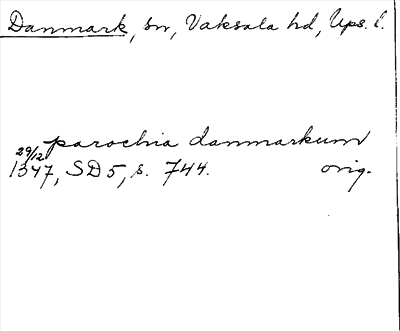 Danmark, sn, Vaksala hd, Ups. l.
parochia danmarkum
29/12
1347, SD 5, s. 744. orig.